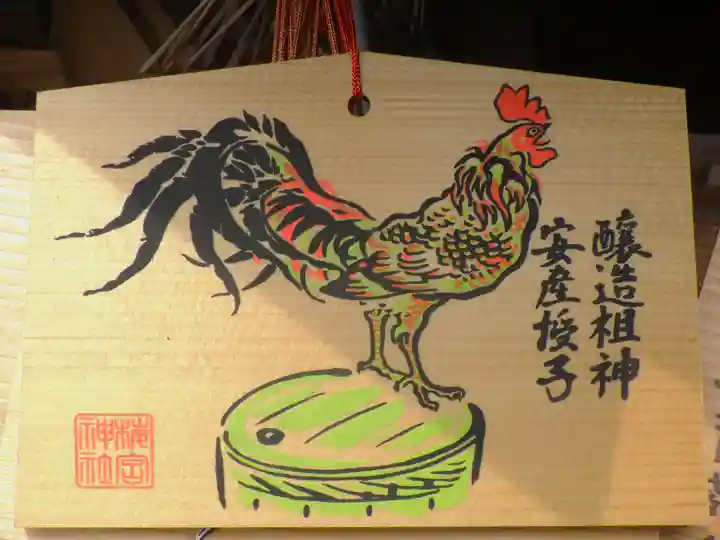 醸造祖神
安産授子
梅宮
神社